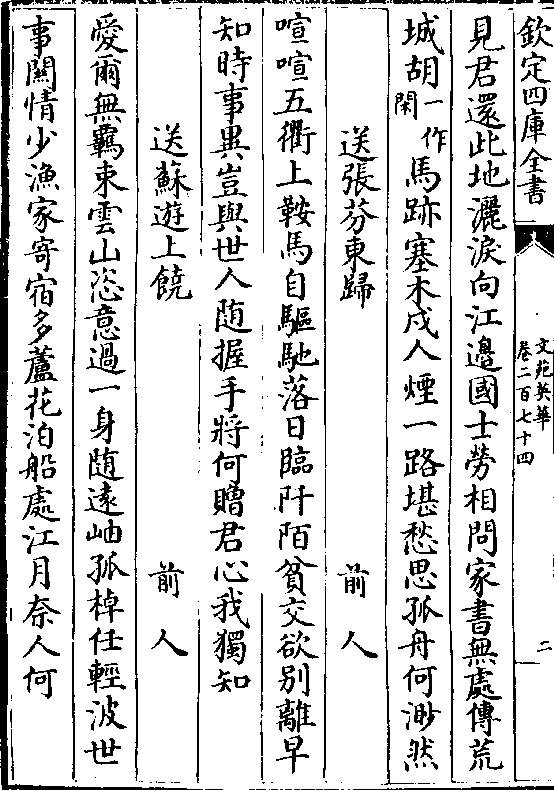 欽定四庫全書
文苑英華
卷二百七十四
二
見君還此地灑淚向江邊國士勞相問家書無處傳荒
城胡一作閑馬跡塞木戍人煙一路堪愁思孤舟何渺然
送張芬東歸 前人
喧喧五衢上鞍馬自驅馳落日臨阡陌貧交欲別離早
知時事異豈與世人随握手將何贈君心我獨知
送蘇遊上饒 前人
愛爾無羈束雲山恣意過一身随遠岫孤棹任輕波世
事關情少漁家寄宿多蘆花泊船處江月奈人何